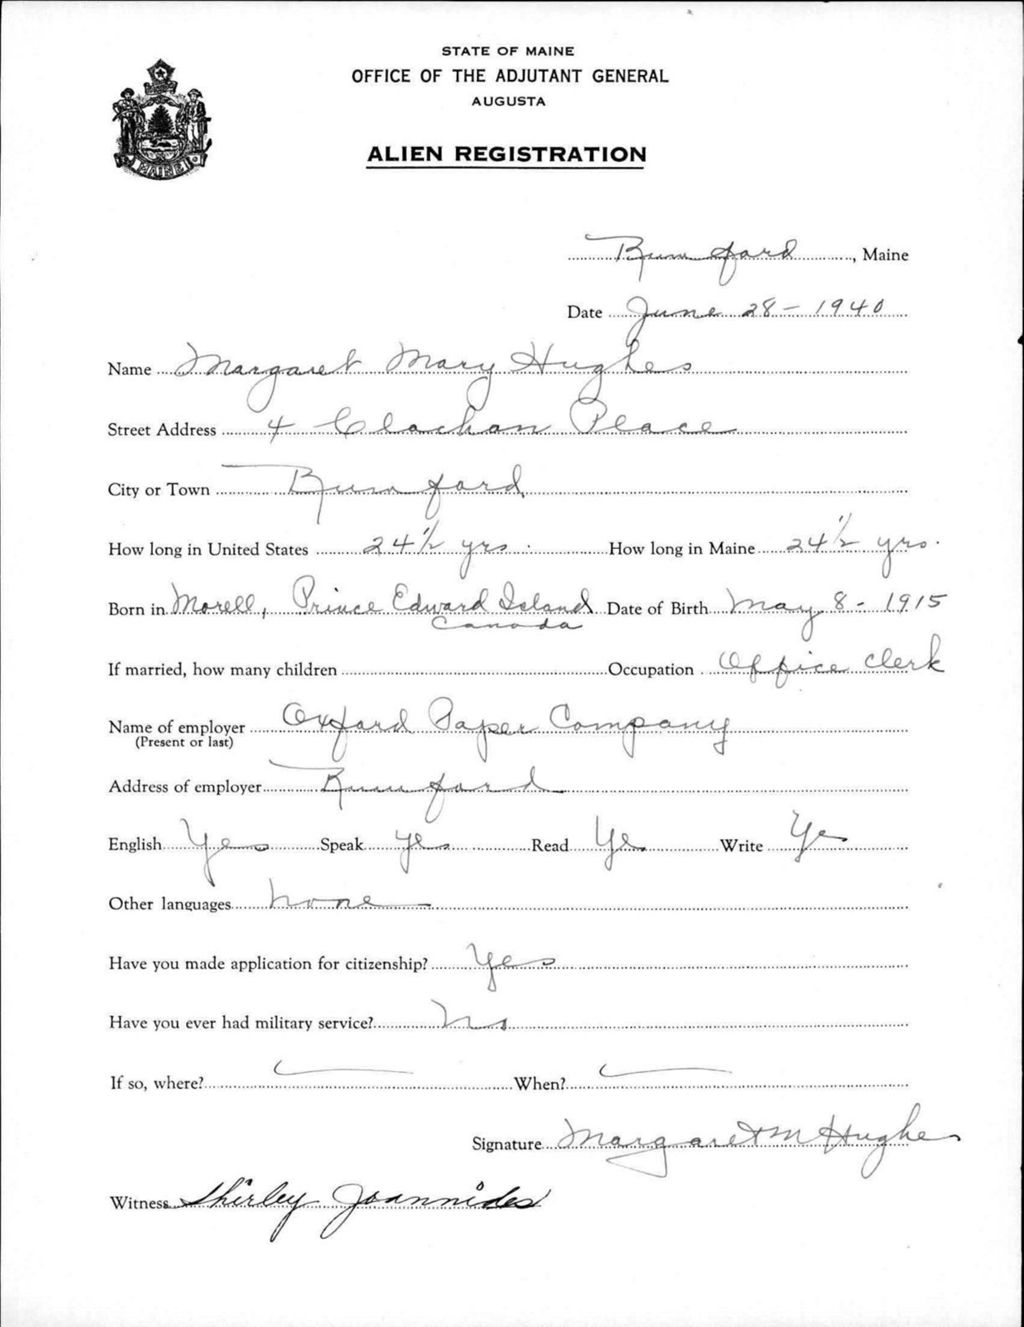 STATE OF MAINE
OFFICE OF THE ADJUTANT GENERAL
AUGUSTA
ALIEN REGISTRATION
MAINE
Rumford, Maine
Date June 28 - 1940
Name Margaret Mary Hughes
Street Address 4 Clachan Place
City or Town Rumford
How long in United States 24 1/2 yrs. How long in Maine 24 1/2 yrs.
Born in Morell, Prince Edward Island Date of Birth May 8 - 1915
Canada
If married, how many children Occupation Office clerk
Name of employer Oxford Paper Company
(Present or last)
Address of employer Rumford
English Yes Speak yes Read Yes Write Yes
Other languages none
Have you made application for citizenship? Yes
Have you ever had military service? No
If so, where? — When? —
Signature Margaret M Hughes
Witness Shirley Joannides